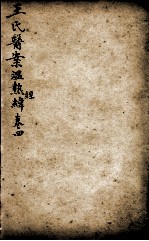 王氏醫案溫熱經緯卷四